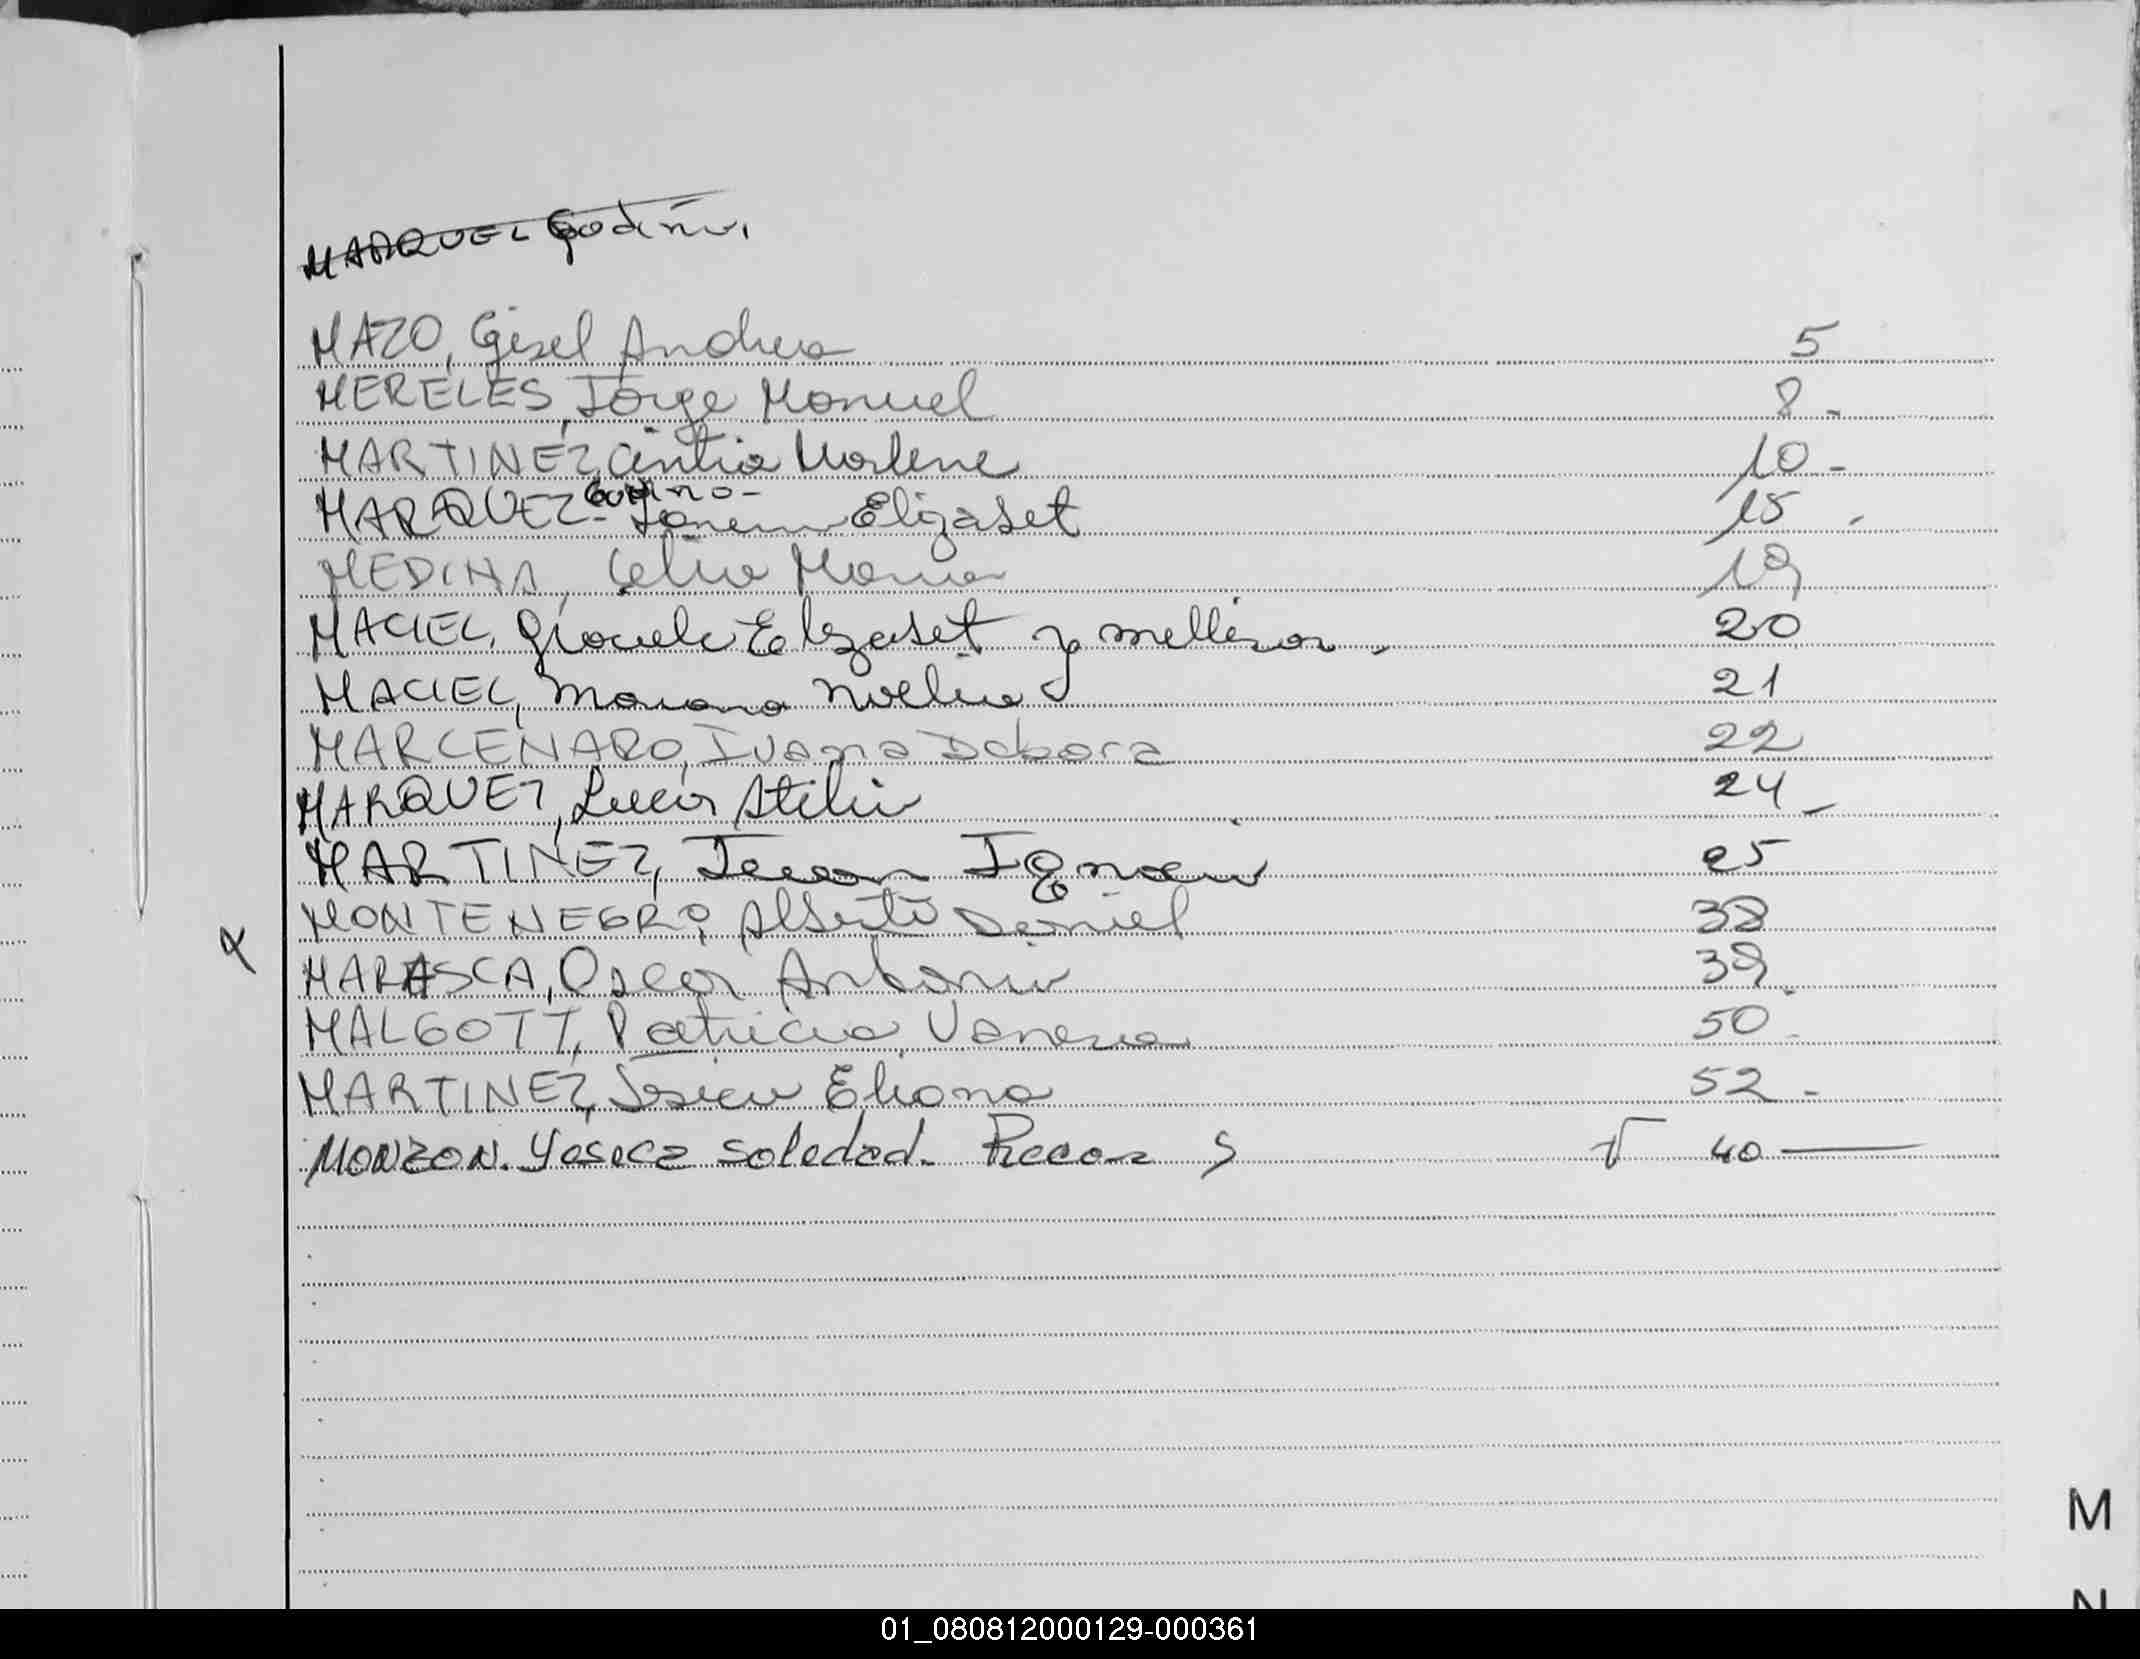 MARQUEZ Godino
MAZO, Gisel Andrea 5
MERELES, Jorge Manuel 8.
MARTINEZ, Cintia Marlene 10-
MARQUEZ- Godino- Elizabet 15.
MEDINA, Celia Maria 19
MACIEL, Elizabet y melliza. 20
MACIEL, Mariana Noelia 21
MARCENARO, Ivana Debora 22
MARQUEZ, Lucia 24-
MARTINEZ, Juan Ignacio 25
MONTENEGRO, Alberto Daniel 38
MARASCA, Oscar Antonio 39.
MALGOTT, Patricia Vanesa 50.
MARTINEZ, Jesica Eliana 52-
MONZON. Yesica Soledad. 40
M
N
01_080812000129-000361